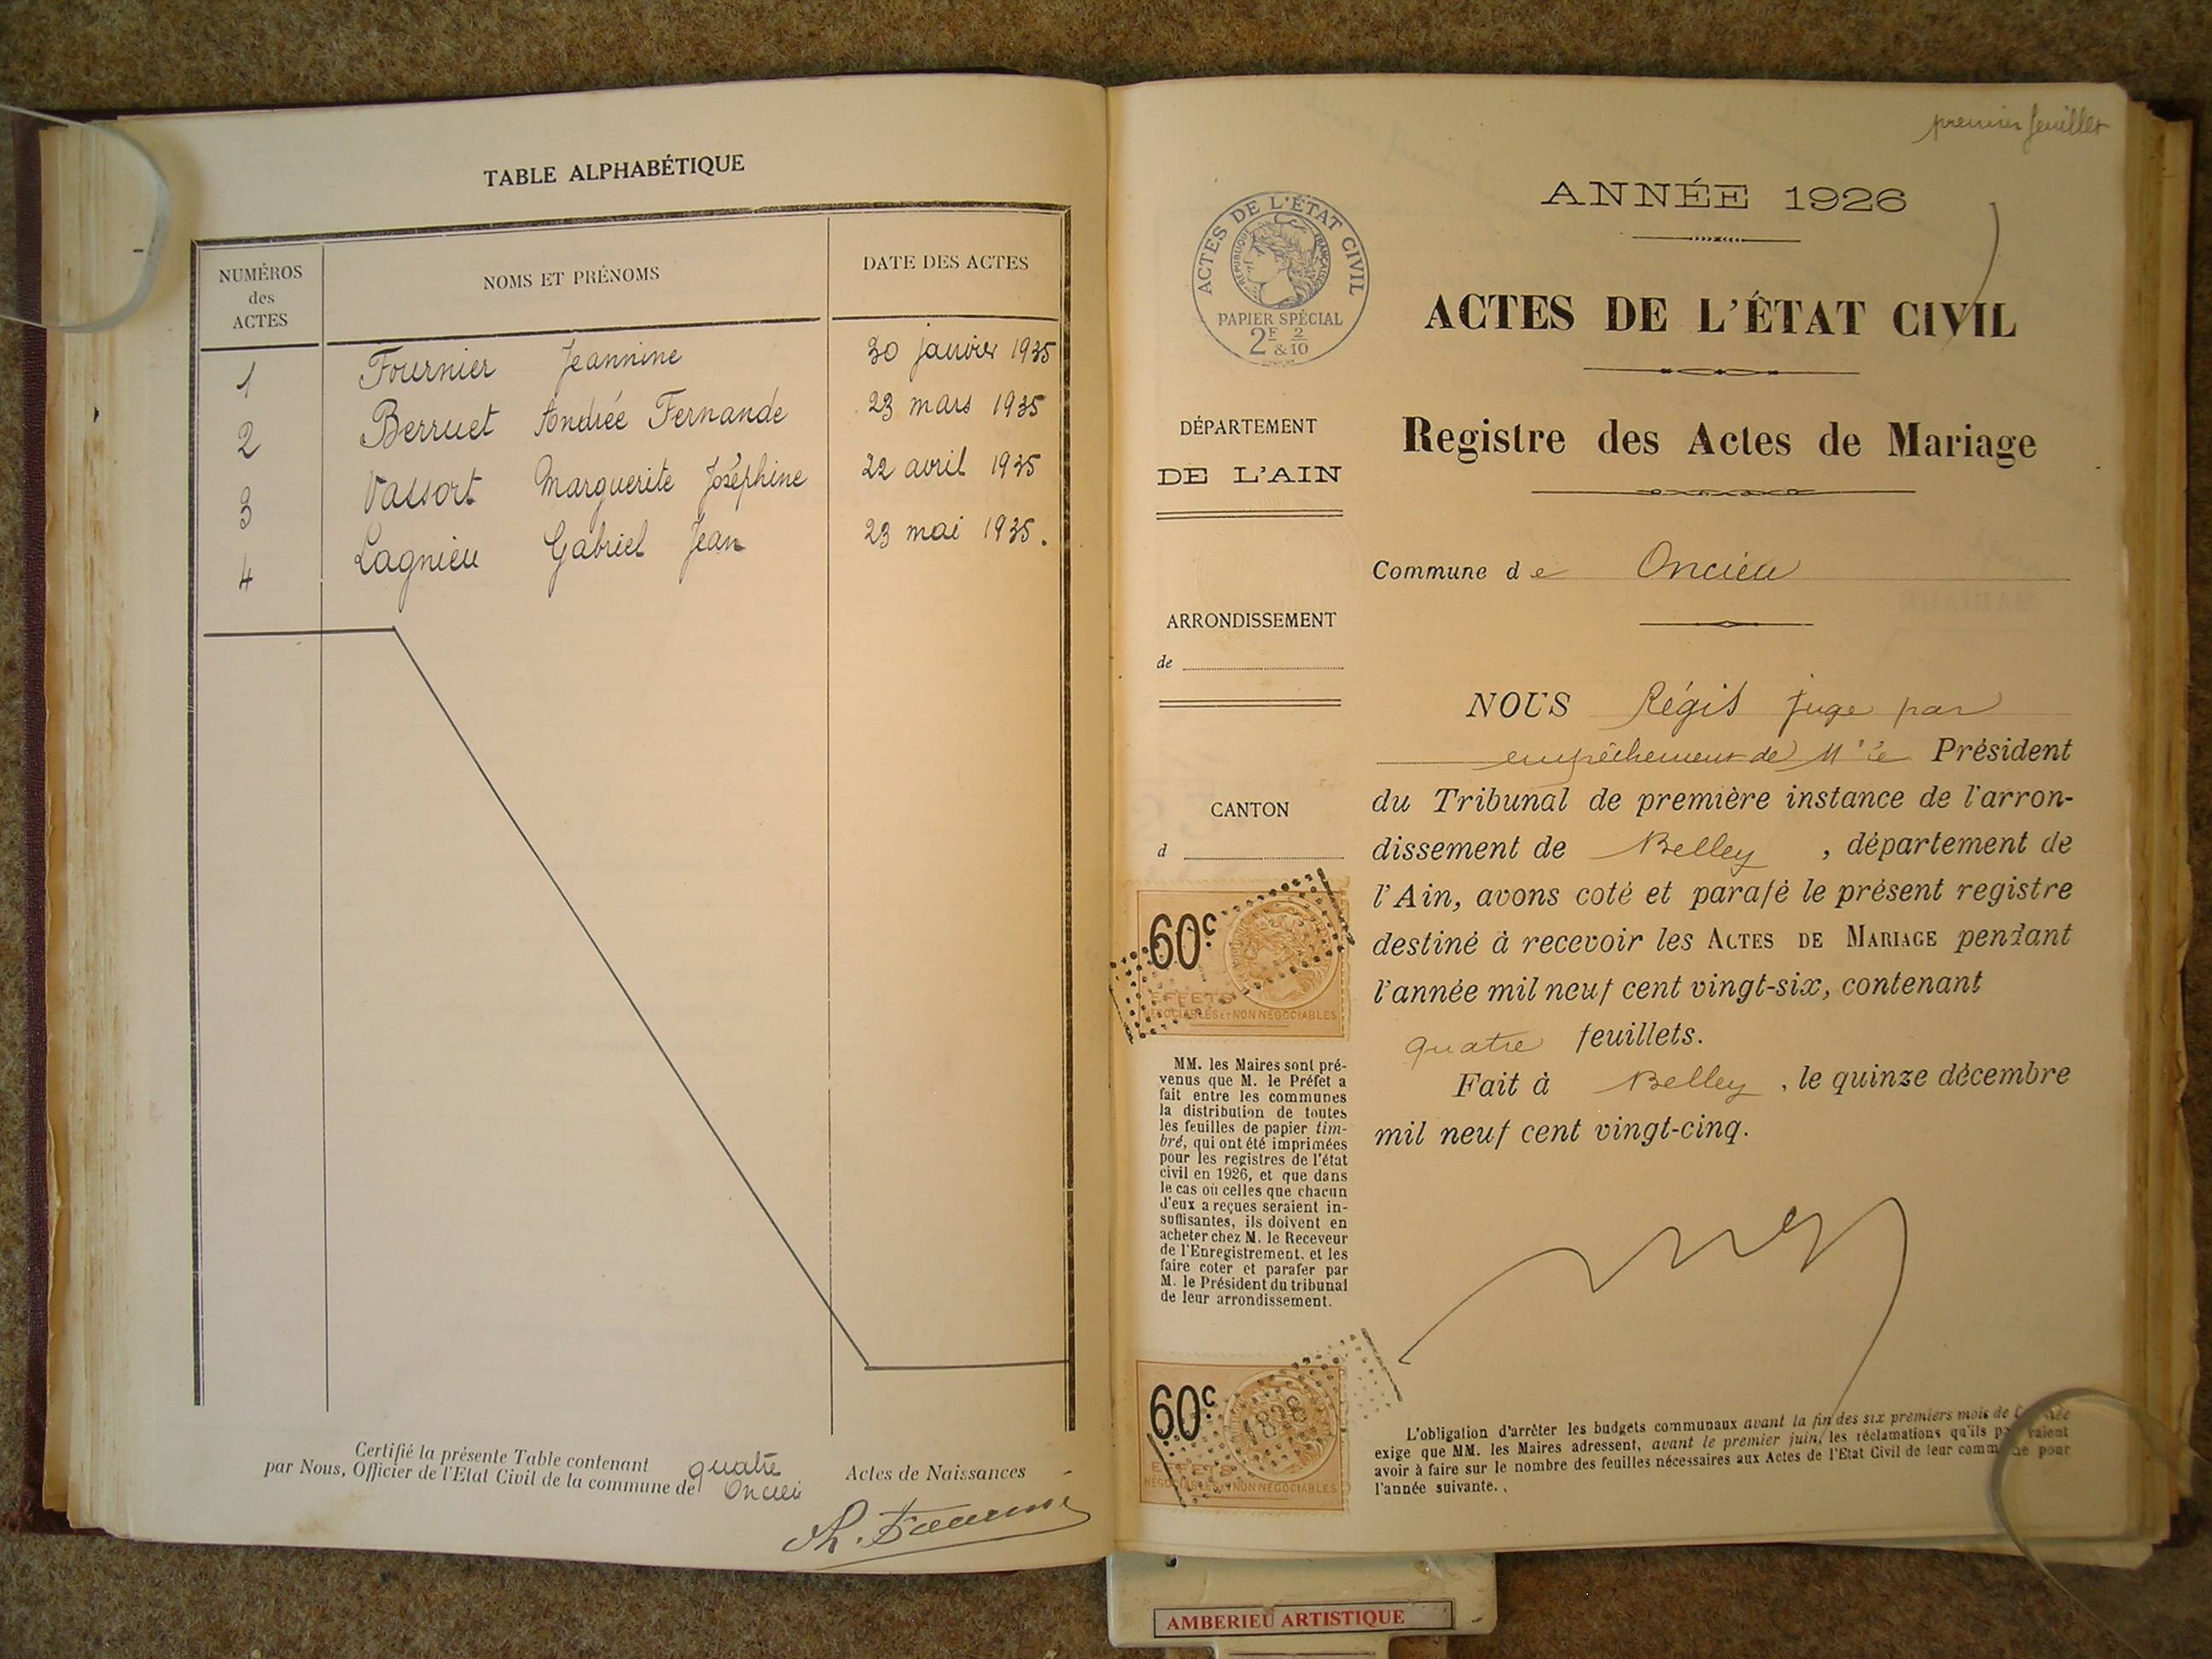 TABLE ALPHABÉTIQUE
NUMÉROS des ACTES NOMS ET PRÉNOMS DATE DES ACTES
1 Fournier Jeannine 30 janvier 1935
2 Berruet Andrée Fernande 23 mars 1935
3 Vassort Marguerite Joséphine 22 avril 1935
4 Lagnieu Gabriel Jean 23 mai 1935.
Certifié la présente Table contenant quatre Actes de Naissances
par Nous, Officier de l'Etat Civil de la commune de Oncieu
premier feuillet
ANNÉE 1926
ACTES DE L'ÉTAT CIVIL
RÉPUBLIQUE FRANÇAISE
PAPIER SPÉCIAL
2F & 2/10
ACTES DE L'ÉTAT CIVIL
Registre des Actes de Mariage
DÉPARTEMENT
DE L'AIN
ARRONDISSEMENT
de
CANTON
d
Commune de Oncieu
NOUS Régis juge par
empêchement de Mr le Président
du Tribunal de première instance de l'arron-
dissement de Belley, département de
l'Ain, avons coté et parafé le présent registre
destiné à recevoir les ACTES DE MARIAGE pendant
l'année mil neuf cent vingt-six, contenant
quatre feuillets.
Fait à Belley, le quinze décembre
mil neuf cent vingt-cinq.
60c
EFFETS
NÉGOCIABLES ET NON NÉGOCIABLES
MM. les Maires sont pré-
venus que M. le Préfet a
fait entre les communes
la distribution de toutes
les feuilles de papier tim-
bré, qui ont été imprimées
pour les registres de l'état
civil en 1926, et que dans
le cas où celles que chacun
d'eux a reçues seraient in-
suffisantes, ils doivent en
acheter chez M. le Receveur
de l'Enregistrement. et les
faire coter et parafer par
M. le Président du tribunal
de leur arrondissement.
60c
EFFETS
NÉGOCIABLES ET NON NÉGOCIABLES
L'obligation d'arrêter les budgets communaux avant la fin des six premiers mois de
exige que MM. les Maires adressent, avant le premier juin, les réclamations qu'ils
avoir à faire sur le nombre des feuilles nécessaires aux Actes de l'Etat Civil de leur commune pour
l'année suivante.
AMBERIEU ARTISTIQUE